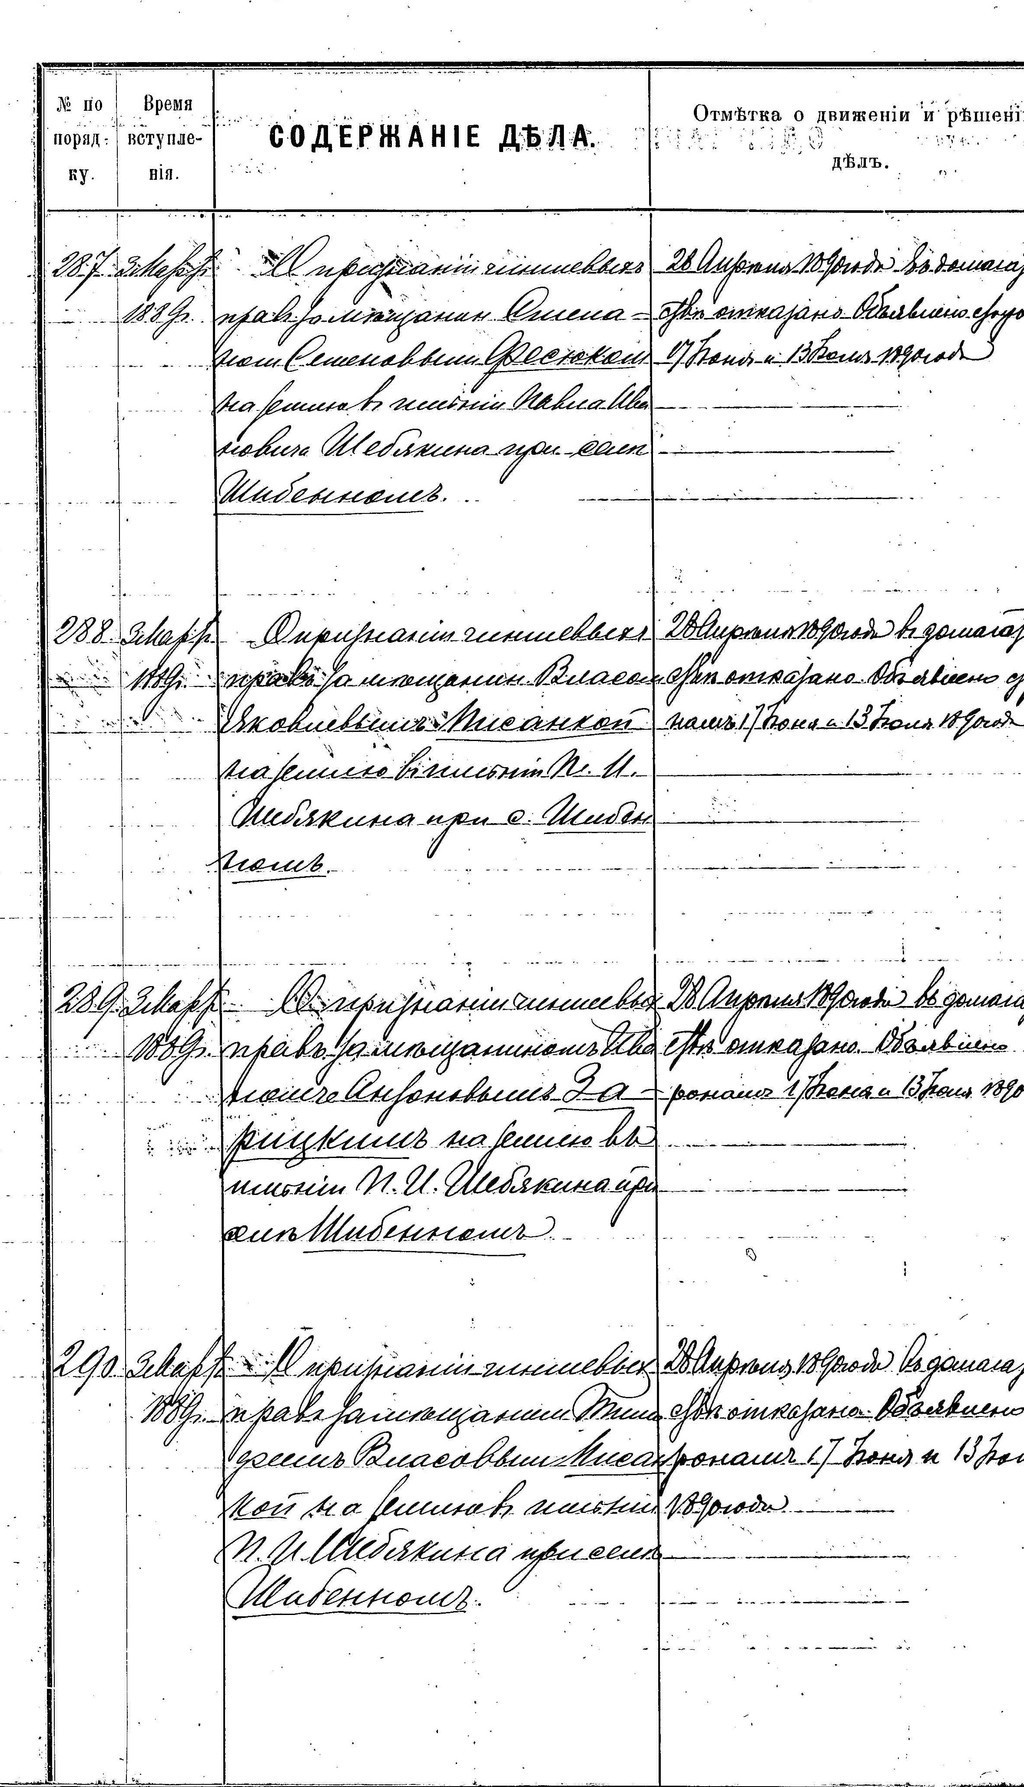 № по поряд- ку.
Время вступле- нія.
СОДЕРЖАНІЕ ДѢЛА.
Отмѣтка о движеніи и рѣшені
дѣлъ.
287 3 Марта О признаніи чиншевыхъ
1889 г. правъ за мѣщанин. Степа-
номъ Семеновымъ Фесюкомъ
на землю въ имѣніи Павла Ива
новича Шебякина при селѣ
Шибенномъ.
28 Апрѣля 1890 года въ домага
ствѣ отказано Объявлено сторо
17 Іюня и 13 Іюля 1890 года
288 3 Марта О признаніи чиншевыхъ
1889 г. правъ за мѣщанин. Власомъ
Яковлевымъ Мисанкой
на землю въ имѣніи П. И.
Шебякина при с. Шибен
номъ.
28 Апрѣля 1890 года въ домага
ствѣ отказано Объявлено с
намъ 17 Іюня и 13 Іюля 1890 года
289 3 Марта О признаніи чиншевых
1889 г. правъ за мѣщаниномъ Ива
номъ Антоновымъ За-
рицкимъ на землю въ
имѣніи П. И. Шебякина при
селѣ Шибенномъ.
28 Апрѣля 1890 года въ домага
ствѣ отказано. Объявлено
ронамъ 17 Іюня и 13 Іюля 1890
290 3 Марта О признаніи чиншевых
1889 г. правъ за мѣщанин. Тимо
феемъ Власовымъ Мисан
кой на землю въ имѣніи
П. И. Шебякина при селѣ
Шибенномъ.
28 Апрѣля 1890 года въ домага
ствѣ отказано Объявлено
ронамъ 17 Іюня и 13 Іюл
1890 года